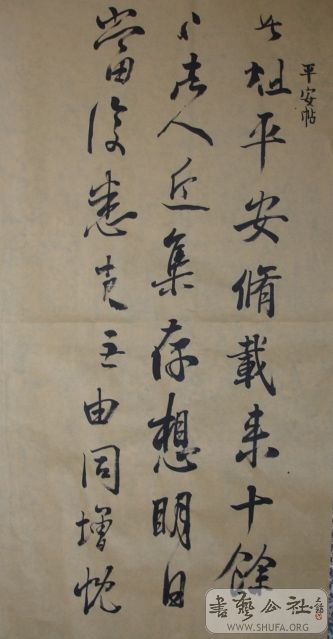 平安帖
此粗平安脩載来十餘
日諸人近集存想明日
當復悉来无由同增慨
書藝公社
WWW.SHUFA.ORG